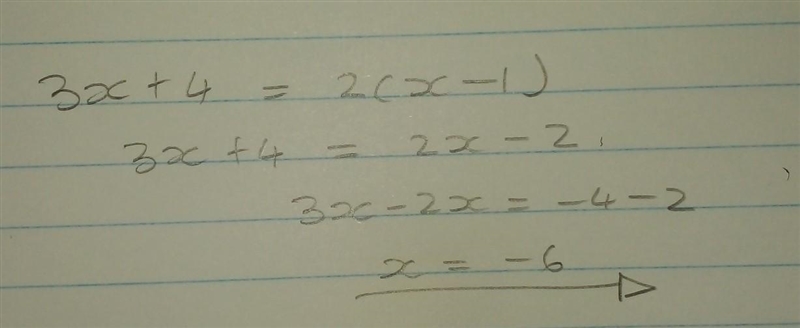 3x + 4 = 2(x - 1)
3x + 4 = 2x - 2.
3x - 2x = -4 - 2
x = -6